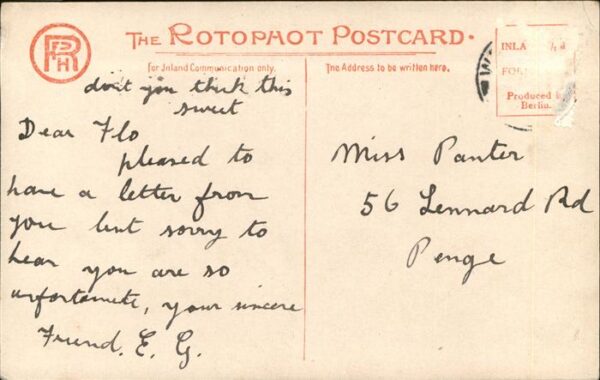 RPPH
THE ROTOPHOT POSTCARD.
For Inland Communication only.
The Address to be written here.
INLA
FO
Produced
Berlin.
don't you think this
sweet
Dear Flo
pleased to
have a letter from
you but sorry to
hear you are so
unfortunate, your sincere
Friend. E. G.
Miss Panter
56 Lennard Rd
Penge